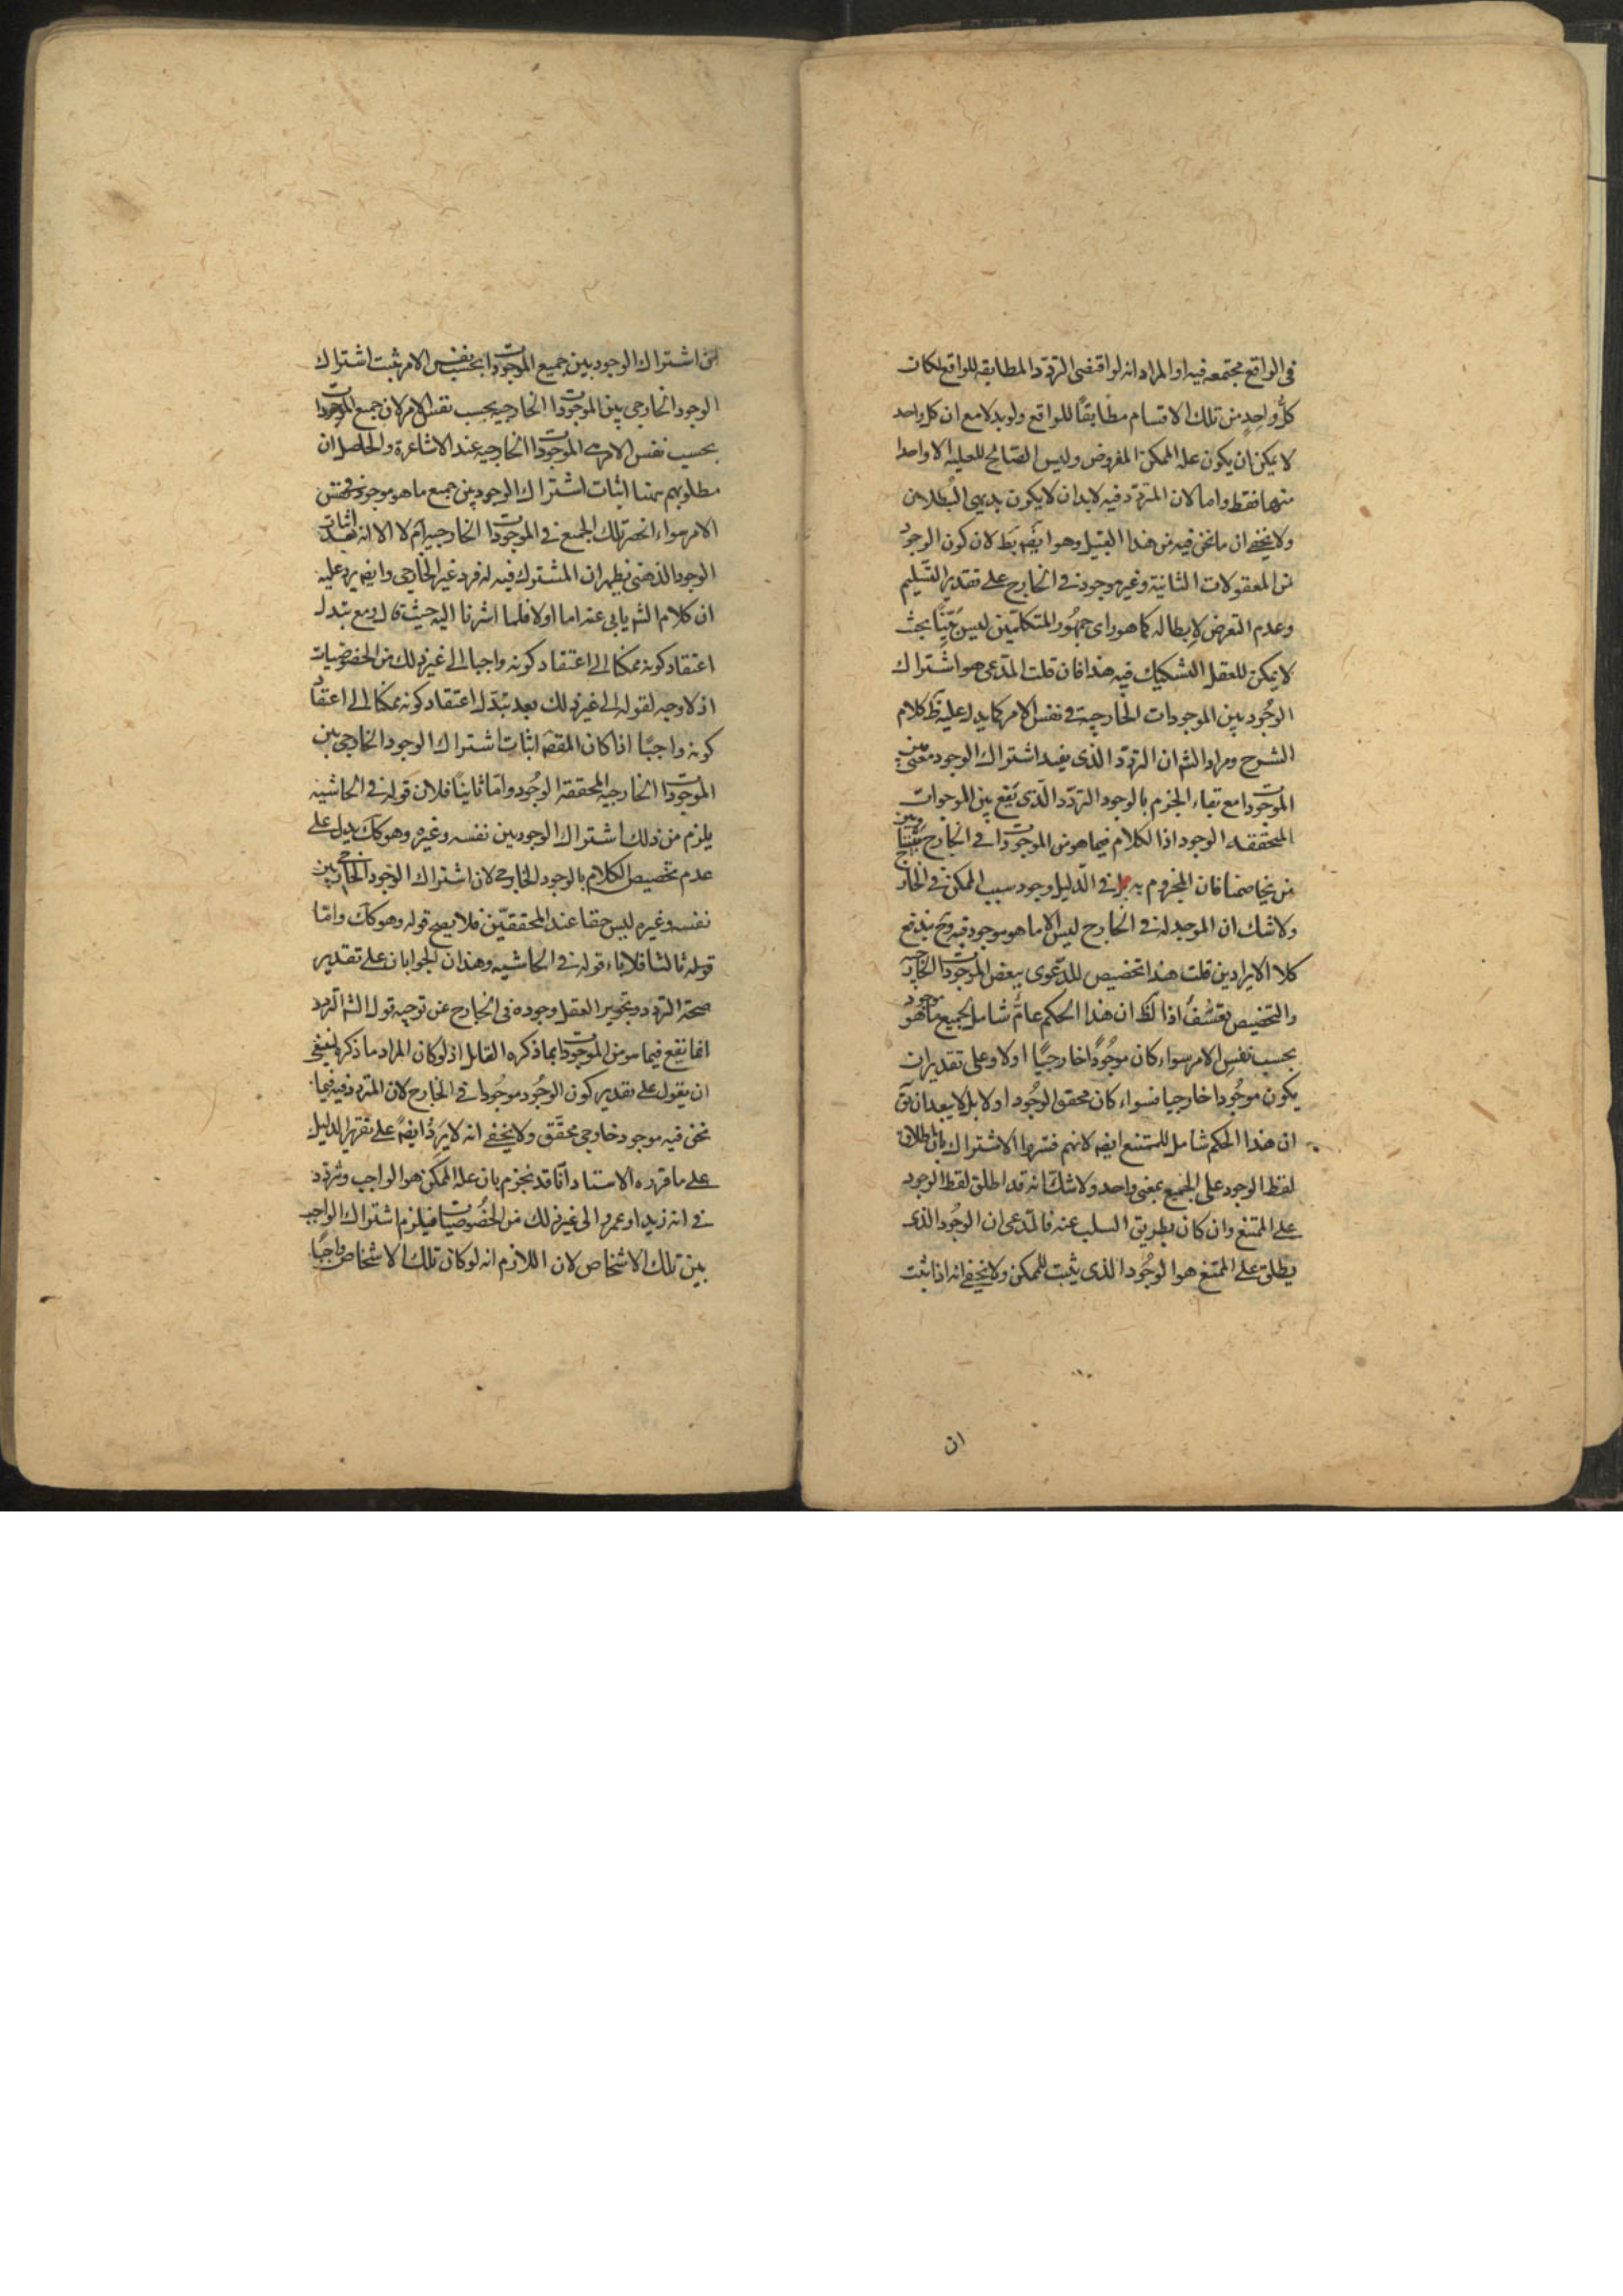 في الواقع مجتمعه فيه او المراد انه لو اقتضى التردد المطابقه للواقع لكان
كلُّ واحِدٍ من تلك الاقسام مطابقاً للواقع ولو بدلا مع ان كل واحد
لا يمكن ان يكون علة الممكن المفروض وليس الصالح للعلية الا واحدا
منها فقط واما لان المتردد فيه لا بد ان لا يكون بديهي البُطلان
ولا يخفى ان ما نحن فيه من هذا القبيل وهو ايضَ بط لان كون الوجود
من المعقولات الثانية وغير موجود في الخارج على تقدير التسليم
وعدم التعرض لإبطاله كما هو راى جمهُور المتكلمين ليس بيّناً بحيث
لا يمكن للعقل التشكيك فيه هذا فان قلت المدعى هو اشتراك
الوجُود بين الموجودات الخارجية في نفس الامر كما يدل عليه ظ كلام
الشرح ومراد الش ان التردّد الذى يفيد اشتراك الوجود معنى بين
الموجودات مع بقاء الجزم بالوجود التردّد الّذى يَقع بين الموجودات
المحققه الوجود اذ الكلام فيما هو من الموجودات في الخارج بيننا وبين
من يخاصمنا فان المجزوم به في الدّليل وجود سبب الممكن في الخارج
ولا شك ان الموجد له في الخارج ليس الا ما هو موجود فيه وح يندفع
كلا الايرادين قلت هذا تخصيص للدّعوى ببعض الموجودات الخارجيه
والتخصيص تعسُّفٌ اذ الظ ان هذا الحكم عامٌّ شامل لجميع ما هُو موجود
بحسب نفس الامر سواء كان موجُودًا خارجيًّا او لا وعلى تقدير ان
يكون موجُودا خارجيا فسواء كان محقق الوجُود او لا بل لا يبعد ان يق
ان هذا الحكم شامل للممتنع ايضَ لانهم فسّروا الاشتراك بان اطلاق
لفظ الوجود على الجميع بمعنى واحد ولا شك انه قد اطلق لفظ الوجود
على الممتنع وان كان بطريق السلب عنه فالمدعى ان الوجُود الذى
يطلق على الممتنع هو الوجُود الذى يثبت للممكن ولا يخفى انه اذا ثبت
ان
من اشتراك الوجود بين جميع الموجودات بحسب نفس الامر ثبت اشتراك
الوجود الخارجي بين الموجودات الخارجيه بحسب نفس الامر لان جميع الموجودات
بحسب نفس الامر هى الموجودات الخارجيه عند الاشاعرة والحاصل ان
مطلوبهم ههنا اثبات اشتراك الوجود بين جميع ما هو موجود في نفس
الامر سواء انحصر تلك الجميع في الموجودات الخارجيه ام لا الا انه بعد اثبات
الوجود الذهني يظهر ان المشترك فيه له فرد غير الخارجي وايضَ يرد عليه
ان كلام الش يابى عنه اما اولا فلما اشرنا اليه حيث قال ومع تبدل
اعتقاد كونه ممكنا الى اعتقاد كونه واجبا الى غير ذلك من الخصوصيات
اذ لا وجه لقوله الى غير ذلك بعد تبدّل اعتقاد كونه ممكنا الى اعتقاد
كونه واجبًا اذا كان المقصَ اثبات اشتراك الوجود الخارجي بين
الموجودات الخارجيه المحققة الوجُود واما ثانيًا فلان قوله في الحاشيه
يلزم من ذلك اشتراك الوجود بين نفسه وغيره وهو كك يدل على
عدم تخصيص الكلام بالوجود الخارجي لان اشتراك الوجود الخارجي بين
نفسه وغيره ليس حقا عند المحققين فلا يصح قوله وهو كك وامّا
ثالثا فلاباء قوله في الحاشيه وهذان الجوابان على تقدير
صحة التردد وتجويز العقل وجوده في الخارج عن توجيه قول الش التردد
انما يقع فيما هو من الموجودات بما ذكره القايل اذ لو كان المراد ما ذكره لينبغي
ان يقول على تقدير كون الوجُود موجُودا في الخارج لان المتردد فيه فيما
نحن فيه موجود خارجي محقّق ولا يخفى انه لا يَرِدُ ايضً على تقرير الدليل
على ما قرره الاستاد انّا قد نجزم بان علة الممكن هو الواجب ونتردّد
في انه زيد او عمرو الى غير ذلك من الخصُوصيّات فيلزم اشتراك الواجب
بين تلك الاشخاص لان اللازم انه لو كان تلك الاشخاص واجبًا